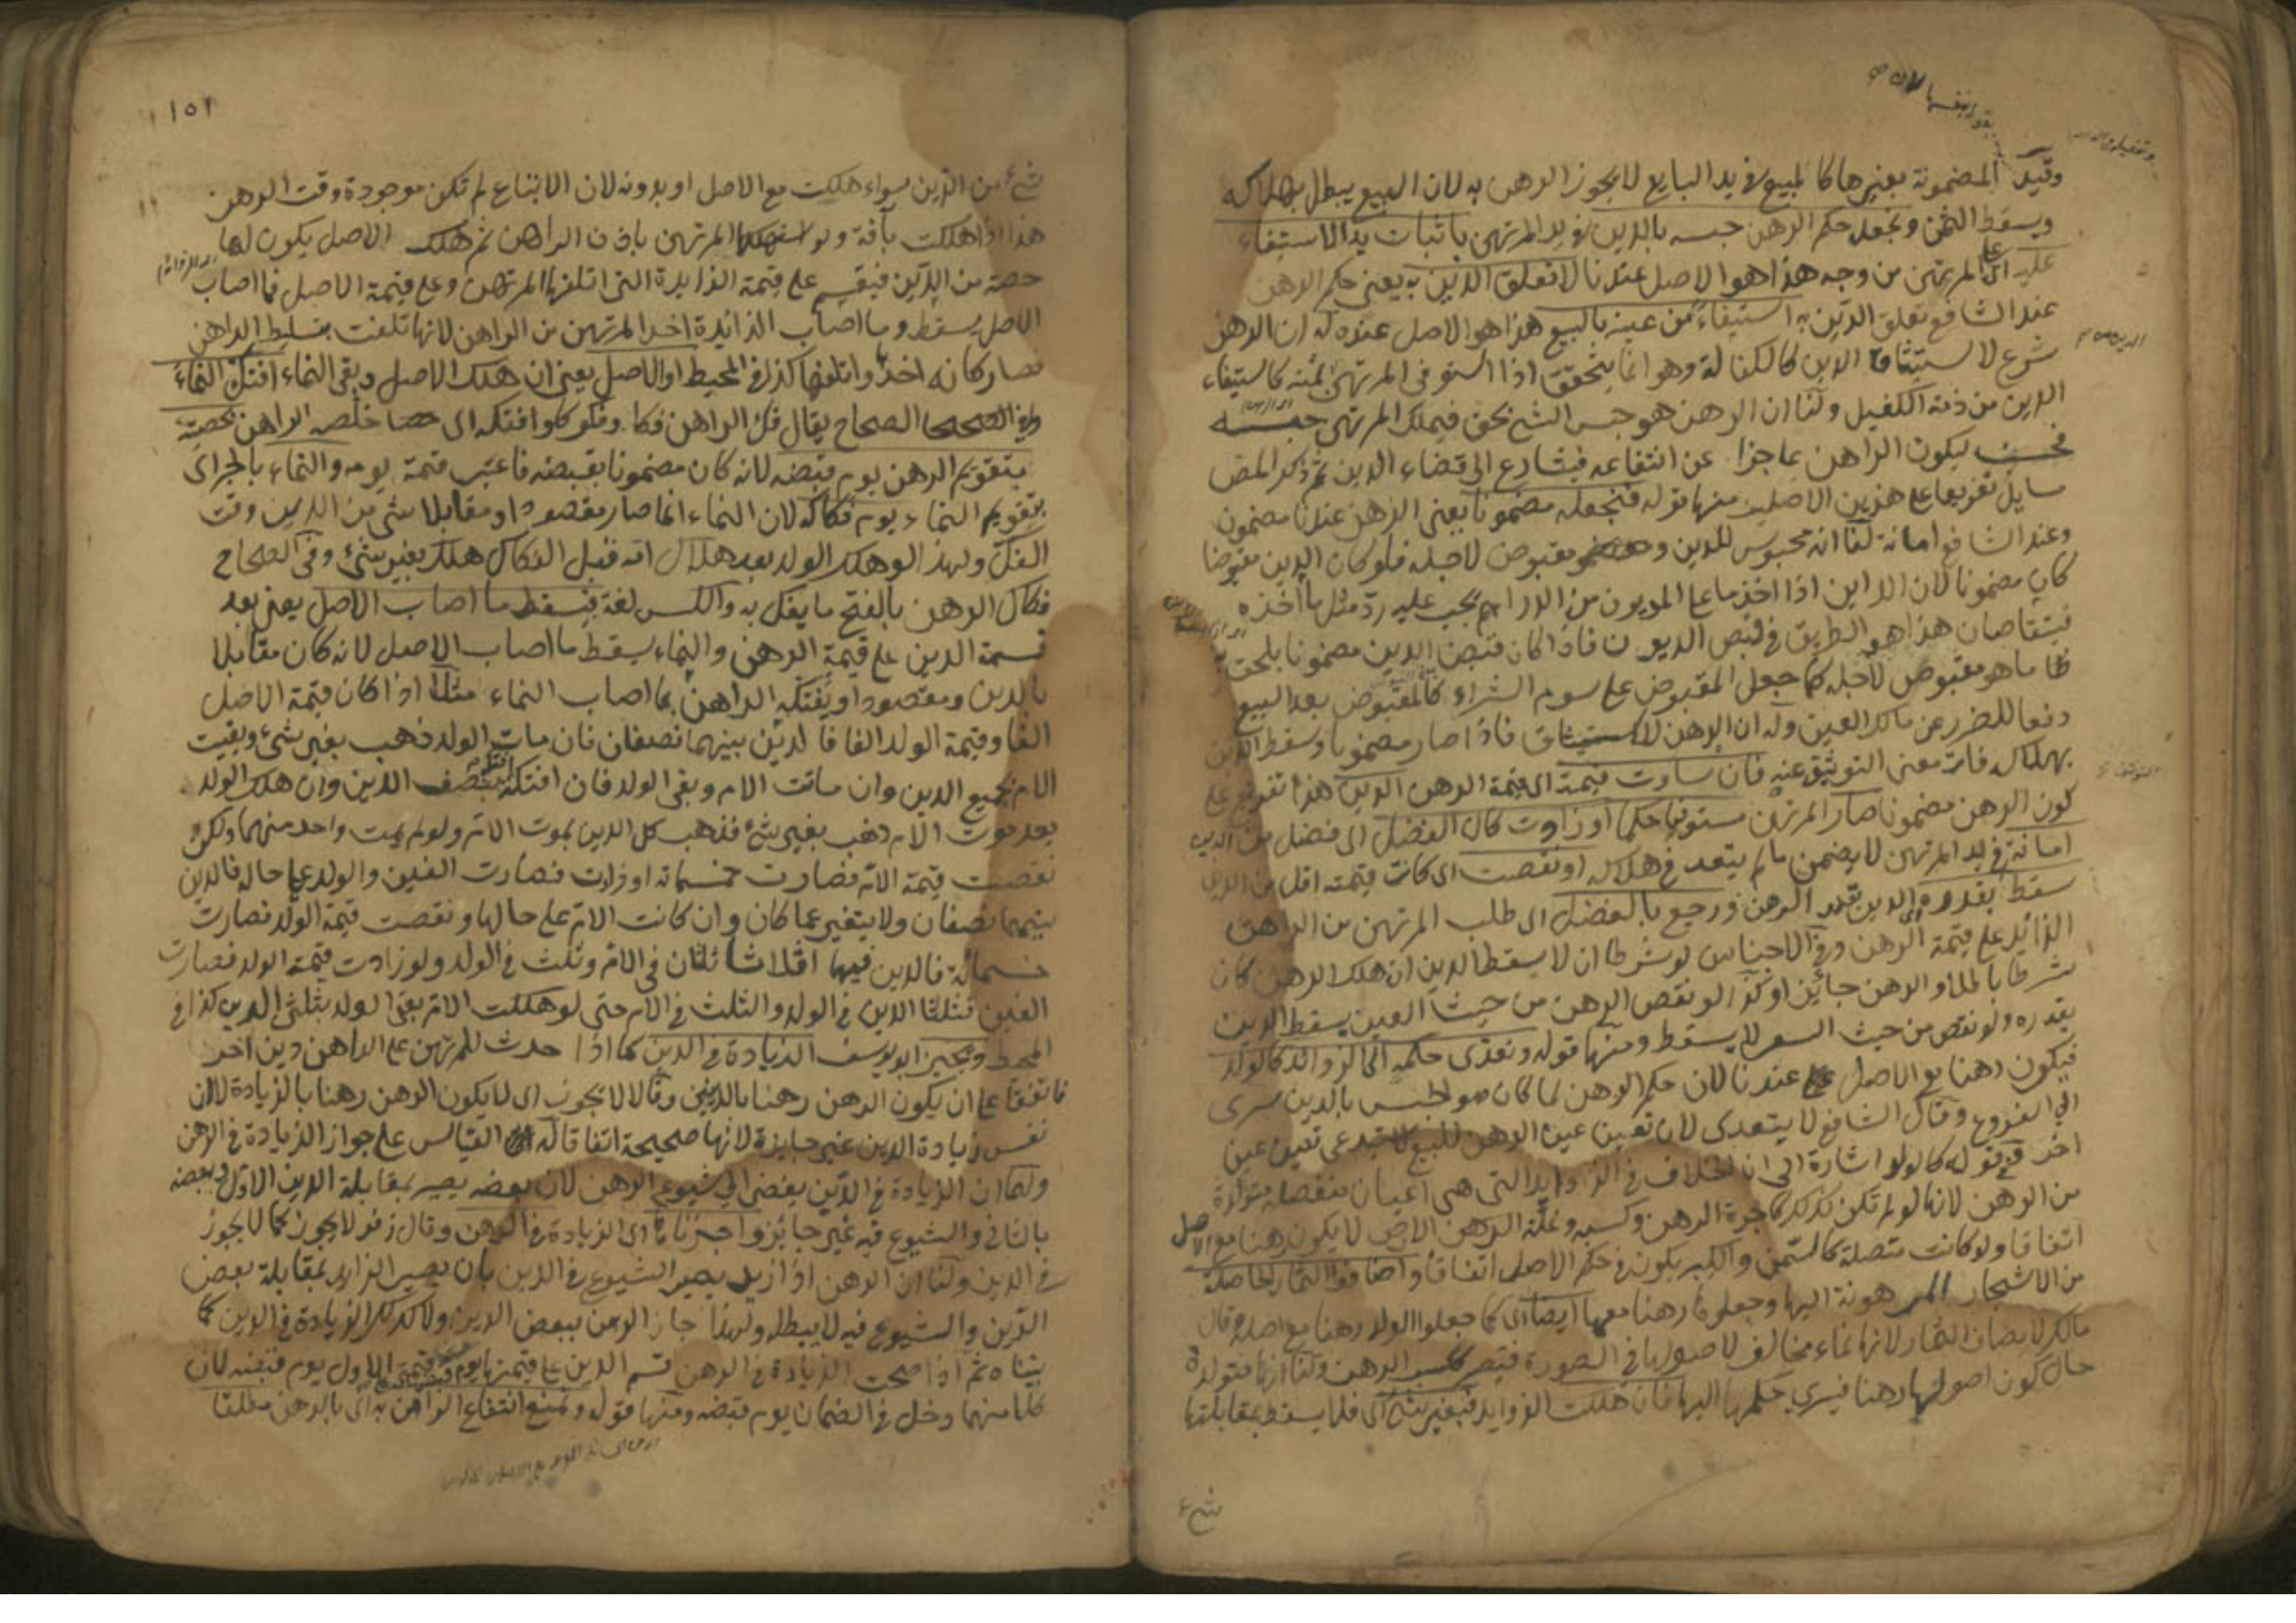 بقوله بنفسها لان
وقيد المضمونة بغيرها كالمبيع في يد البايع لا يجوز الرهن به لان البيع يبطل بهلاكه
ويسقط الثمن ونجعل حكم الرهن حبسه بالدين في يد المرتهن باثبات يد الاستيفاء
عليه اى على المرتهن من وجه هذا هو الاصل عندنا لا تعلق الدين به يعنى حكم الرهن
عند الشافعي تعلق الدين به استيفاء من عينه بالبيع هذا هو الاصل عنده له ان الرهن
شرع لاستيثاق الدين كالكفالة وهو انما يتحقق اذا استوفى المرتهن من ثمنه كاستيفاء
الدين من ذمة الكفيل ولنا ان الرهن هو حبس الشئ بحق فيملك المرتهن حبسه
ليكون الراهن عاجزا عن انتفاعه فيتسارع الى قضاء الدين ثم ذكر المص
مسايل تفريعا على هذين الاصلين منها قوله فنجعله مضمونا يعنى الرهن عندنا مضمون
وعند الشافعي امانة لنا انه محبوس للدين ومقبوض لاجله فلو كان الدين مقبوضا
كان مضمونا لان الداين اذا اخذ ما على المديون من الدراهم يجب عليه رد مثل ما اخذه
فيتقاصان هذا هو الطريق في قبض الديون فاذا كان قبض الدين مضمونا يلحق به
ما هو مقبوض لاجله كما جعل المقبوض على سوم الشراء كالمقبوض بعد البيع
دفعا للضرر عن مالك العين وله ان الرهن لاستيثاق فاذا صار مضمونا وسقط الدين
بهلاكه فات معنى التوثيق عنه فان ساوت قيمته اى قيمة الرهن الدين هذا تفريع على
كون الرهن مضمونا صار المرتهن مستوفيا حكما او زادت كان الفضل اى فضل من الدين
امانة في يد المرتهن لا يضمن ما لم يتعد في هلاكه او نقصت اى كانت قيمته اقل من الدين
سقط بقدره اى الدين بقدر الرهن ورجع بالفضل اى طلب المرتهن من الراهن
الزائد على قيمة الرهن وفي الاجناس لو شرطا ان لا يسقط الدين ان هلك الرهن كان
شرطا باطلا والرهن جائز او كذا لو نقص الرهن من حيث العين يسقط الدين
بقدره ولو نقص من حيث السعر لا يسقط ومنها قوله ونعدى حكمه الى الزوائد كالولد
فيكون رهنا مع الاصل عندنا لان حكم الرهن لما كان هو الحبس بالدين سرى
الى الفروع وقال الشافعي لا يتعدى لان تعين عين الرهن للبيع لا يستدعى تعين عين
اخر في قوله كالولد اشارة الى ان الخلاف في الزوايد التي هي اعيان منفصلة متولدة
من الرهن لانها لو لم تكن كذلك كاجرة الرهن وكسبه وغلة الرهن الارض لا يكون رهنا مع الاصل
اتفاقا ولو كانت متصلة كالسمن والكبر يكون في حكم الاصل اتفاقا واضافوا الثمار الحاصلة
من الاشجار المرهونة اليها وجعلوها رهنا معها ايضا اى كما جعلوا الولد رهنا مع اصله وقال
مالك لا يضاف الثمار لانها نماء مخالف لاصولها في الصورة فيصير ككسب الرهن ولنا انها متولدة
حال كون اصولها رهنا فيسري حكمها اليها فان هلكت الزوايد فبغير شئ اى فلا يسقط بمقابلتها
شئ
١٥٢
شئ من الدين سواء هلكت مع الاصل او بدونه لان الاتباع لم تكن موجودة وقت الرهن
هذا اذا هلكت بآفة ولو استهلكها المرتهن باذن الراهن ثم هلك الاصل يكون لها
حصة من الدين فيقسم على قيمة الزايدة التي اتلفها المرتهن وعلى قيمة الاصل فما اصاب
الاصل يسقط وما اصاب الزائدة اخذ المرتهن من الراهن لانها تلفت بتسليط الراهن
فصار كانه اخذها واتلفها كذا في المحيط او الاصل يعنى ان هلك الاصل وبقى النماء افتك النماء
وفي الصحاح يقال فك الراهن فكا وفكوكا وافتكه اى خلصه الراهن بحصته
بتقويم الرهن يوم قبضه لانه كان مضمونا بقبضه فاعتبر قيمة يومه والنماء بالجر اى
بتقويم النماء يوم فكاكه لان النماء انما صار مقصودا ومقابلا بشئ من الدين وقت
الفك ولهذا لو هلك الولد بعد هلاك امه قبل الفكاك هلك بغير شئ وفي الصحاح
فكاك الرهن بالفتح ما يفك به والكسر لغة فيسقط ما اصاب الاصل يعنى بعد
قسمة الدين على قيمة الرهن والنماء يسقط ما اصاب الاصل لانه كان مقابلا
بالدين ومقصودا ويفتكه الراهن بما اصاب النماء مثلا اذا كان قيمة الاصل
الفا وقيمة الولد الفا فالدين بينهما نصفان فان مات الولد ذهب بغير شئ وبقيت
الام بجميع الدين وان ماتت الام وبقى الولد فان افتكه افتكه بنصف الدين وان هلك الولد
بعد موت الام ذهب بغير شئ فذهب كل الدين بموت الام ولو لم يمت واحد منهما ولكن
نقصت قيمة الام فصارت خمسمائة او زادت فصارت الفين والولد على حاله فالدين
بينهما نصفان ولا يتغير عما كان وان كانت الام على حالها ونقصت قيمة الولد فصارت
خمسمائة فالدين فيهما اثلاثا ثلثان في الام وثلث في الولد ولو زادت قيمة الولد فصارت
الفين فثلثا الدين في الولد والثلث في الام حتى لو هلكت الام بقى الولد بثلثى الدين كذا في
المحيط ويجيز ابو يوسف الزيادة في الدين كما اذا حدث للمرتهن على الراهن دين آخر
فاتفقا على ان يكون الرهن رهنا بالدينين وقالا لا يجوز اى لا يكون الرهن رهنا بالزيادة لان
نفس زيادة الدين غير جايزة لانها صحيحة اتفاقا له القياس على جواز الزيادة في الرهن
ولهما ان الزيادة في الدين يفضى الى شيوع الرهن لان بعضه يصير بمقابلة الدين الاول وبعضه
بالثاني والشيوع فيه غير جائز واجزناها اى الزيادة في الرهن وقال زفر لا يجوز كما لا يجوز
في الدين ولنا ان الرهن اذا زيد يصير الشيوع في الدين بان يصير الزايد بمقابلة بعض
الدين والشيوع فيه لا يبطله ولهذا جاز الرهن ببعض الدين ولا كذلك الزيادة في الدين كما
بيناه ثم اذا صحت الزيادة في الرهن قسم الدين على قيمتها يوم قبضها وعلى قيمة الاول يوم قبضه لان
كلا منهما دخل في الضمان يوم قبضه ومنها قوله ونمنع انتفاع الراهن به اى بالرهن مطلقا